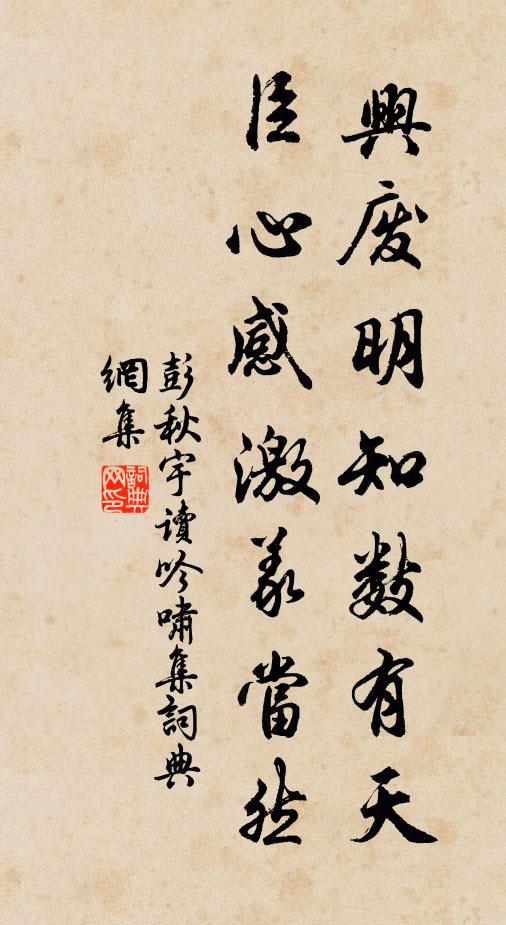 興废明知数有天
臣心感激義當然
彭秋宇讀吟嘯集詞典
網集
詞典
网印